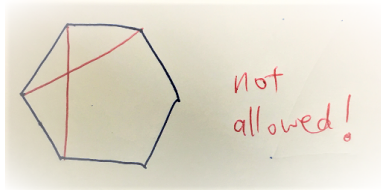 not
allowed!